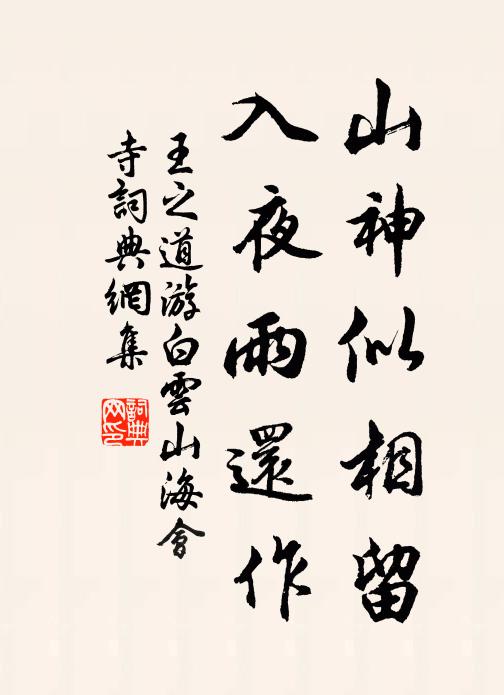 山神似相留
入夜雨還作
王之道游白雲山海會
寺詞典網集
詞典網印